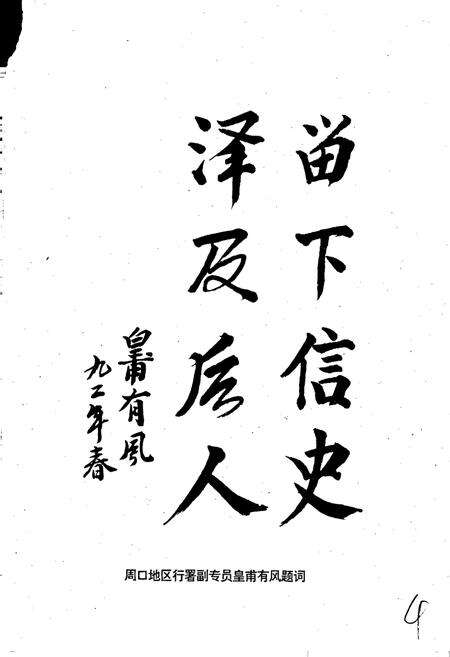 留下信史
泽及后人
皇甫有風
九二年春
周口地区行署副专员皇甫有风题词
4